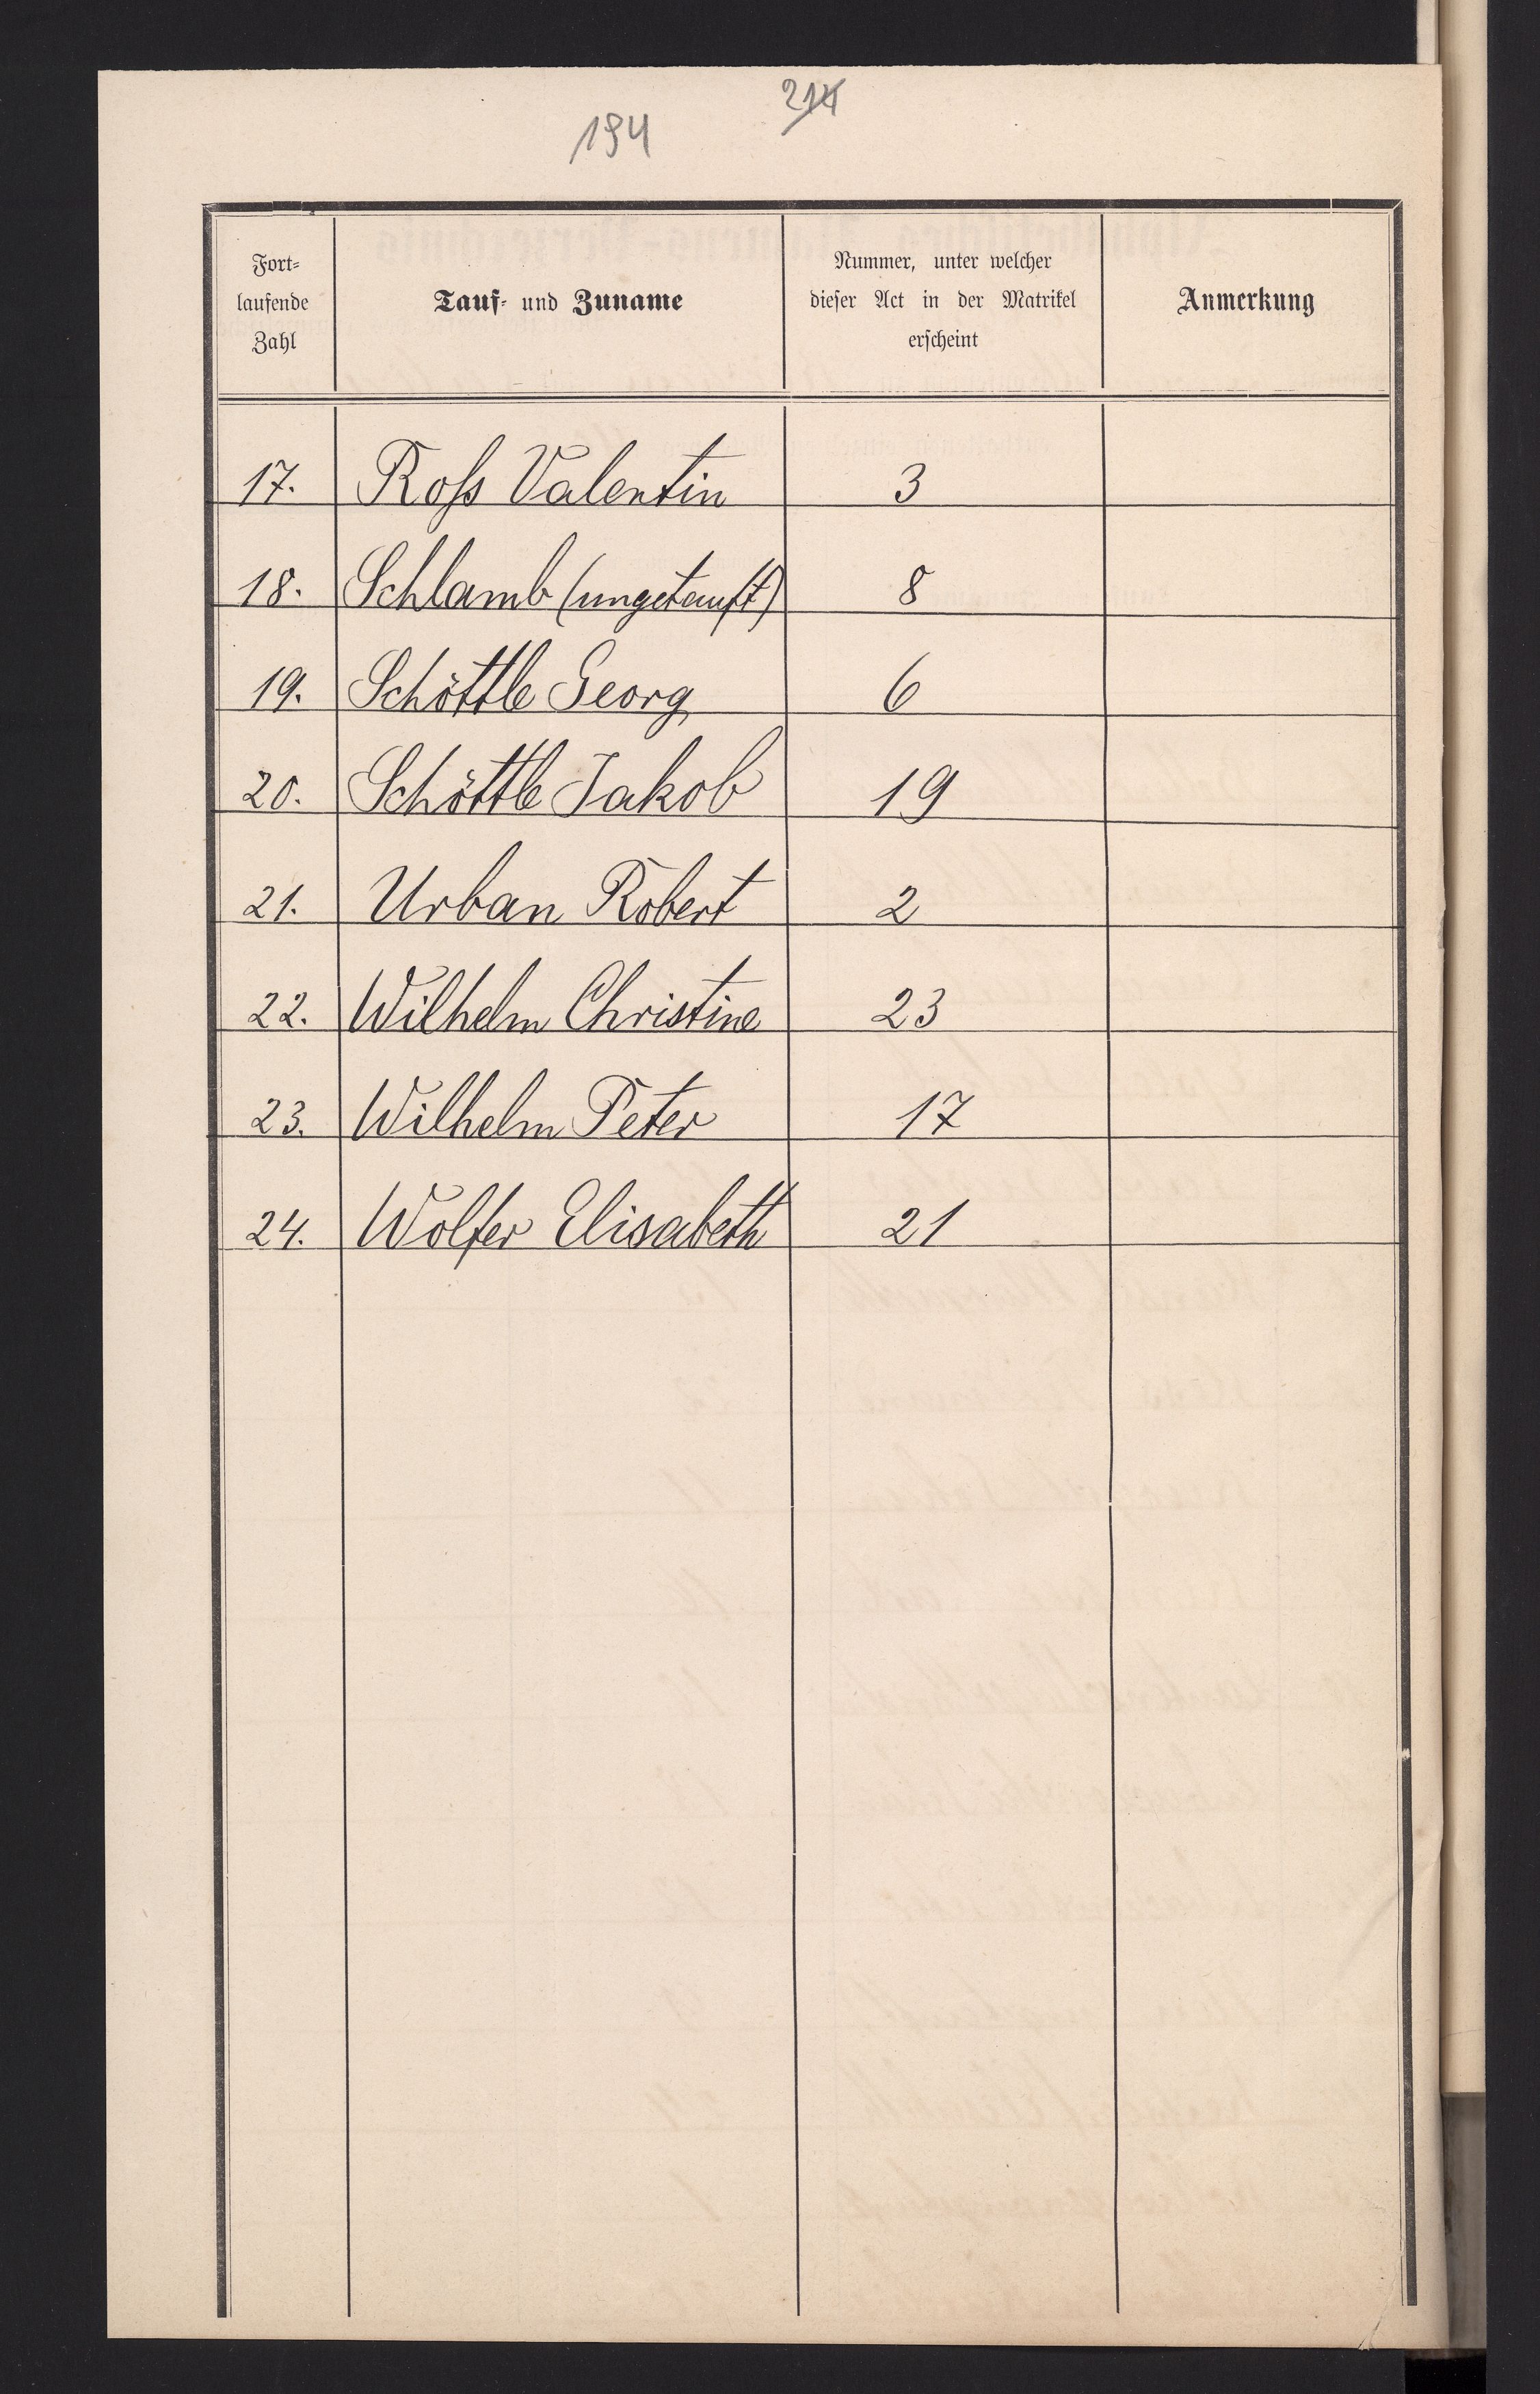 214
194
Fort-
laufende
Zahl
Tauf- und Zuname
Nummer, unter welcher
dieser Act in der Matrikel
erscheint
Anmerkung
17. Roſs Valentin 3
18. Schlamb (ungetauft) 8
19. Schöttle Georg 6
20. Schöttle Jakob 19
21. Urban Robert 2
22. Wilhelm Christine 23
23. Wilhelm Peter 17
24. Wolfer Elisabeth 21